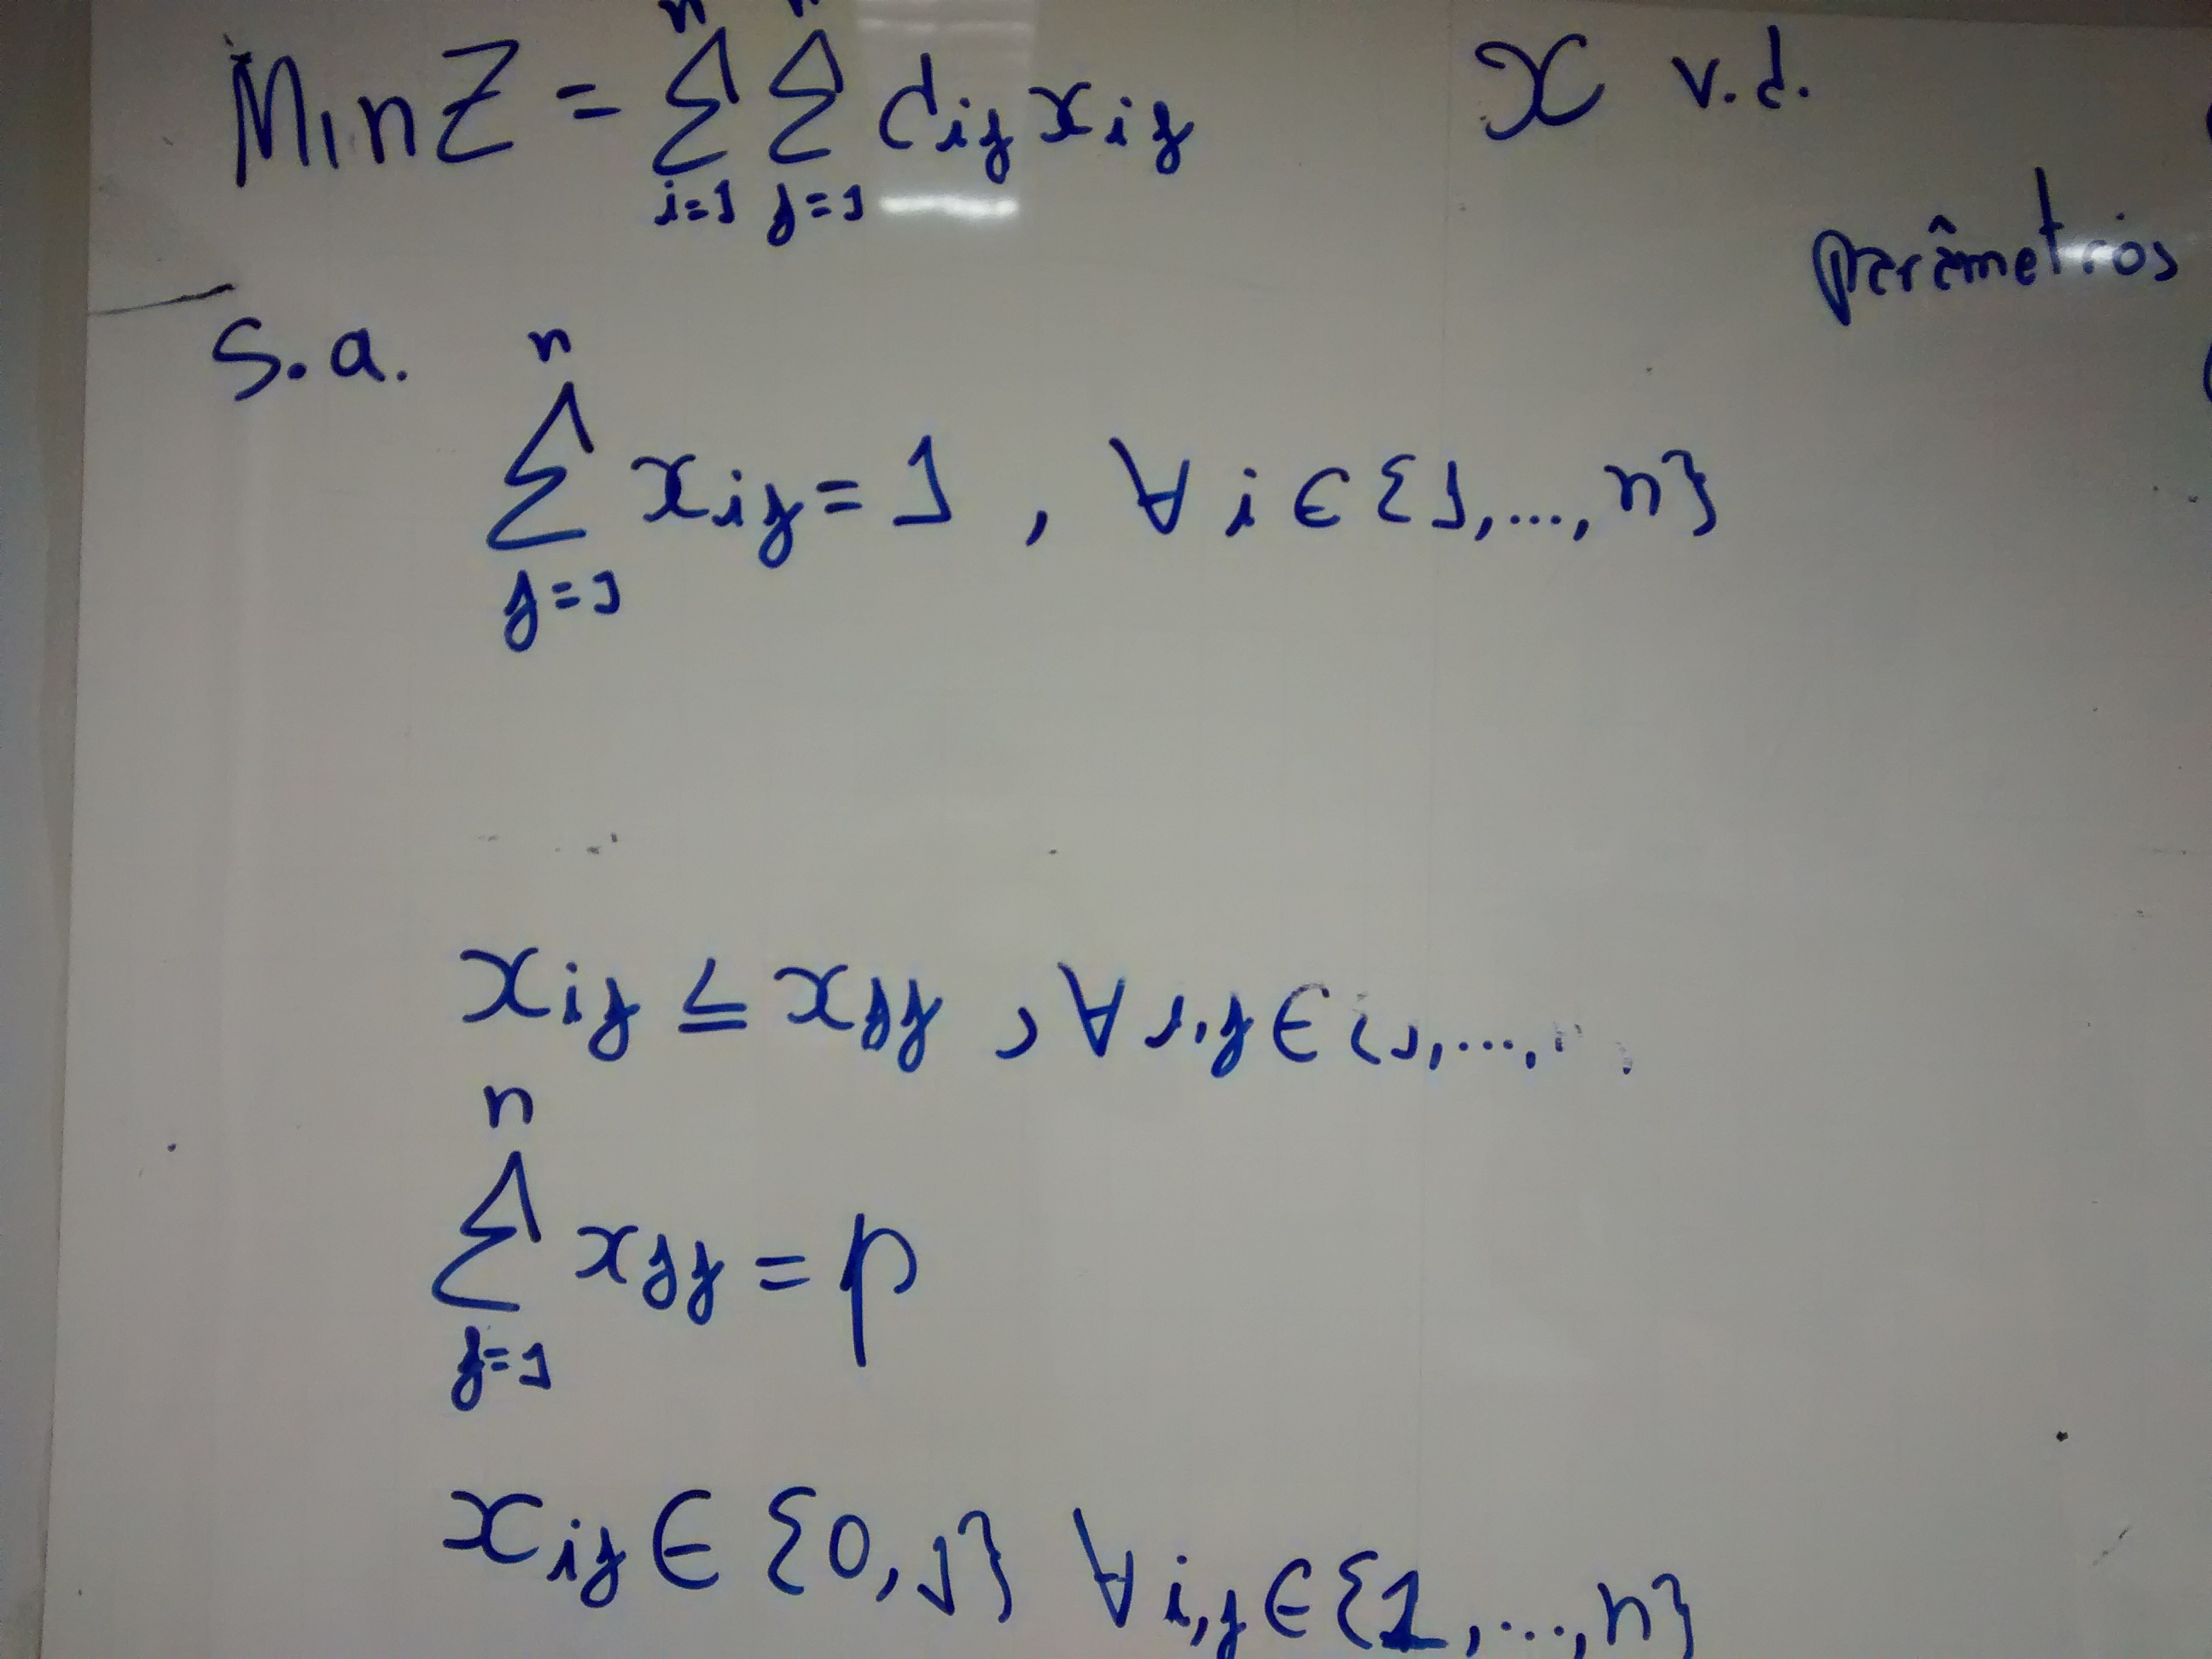 Min Z = n∑i=1 n∑j=1 dij xij   x v.d.
parâmetros
s.a.
n∑j=1 xij = 1 , ∀ i ∈ {1,...,n}
xij ≤ xjj , ∀ i,j ∈ {1,...,
n∑j=1 xjj = p
xij ∈ {0,1} ∀ i,j ∈ {1,...,n}